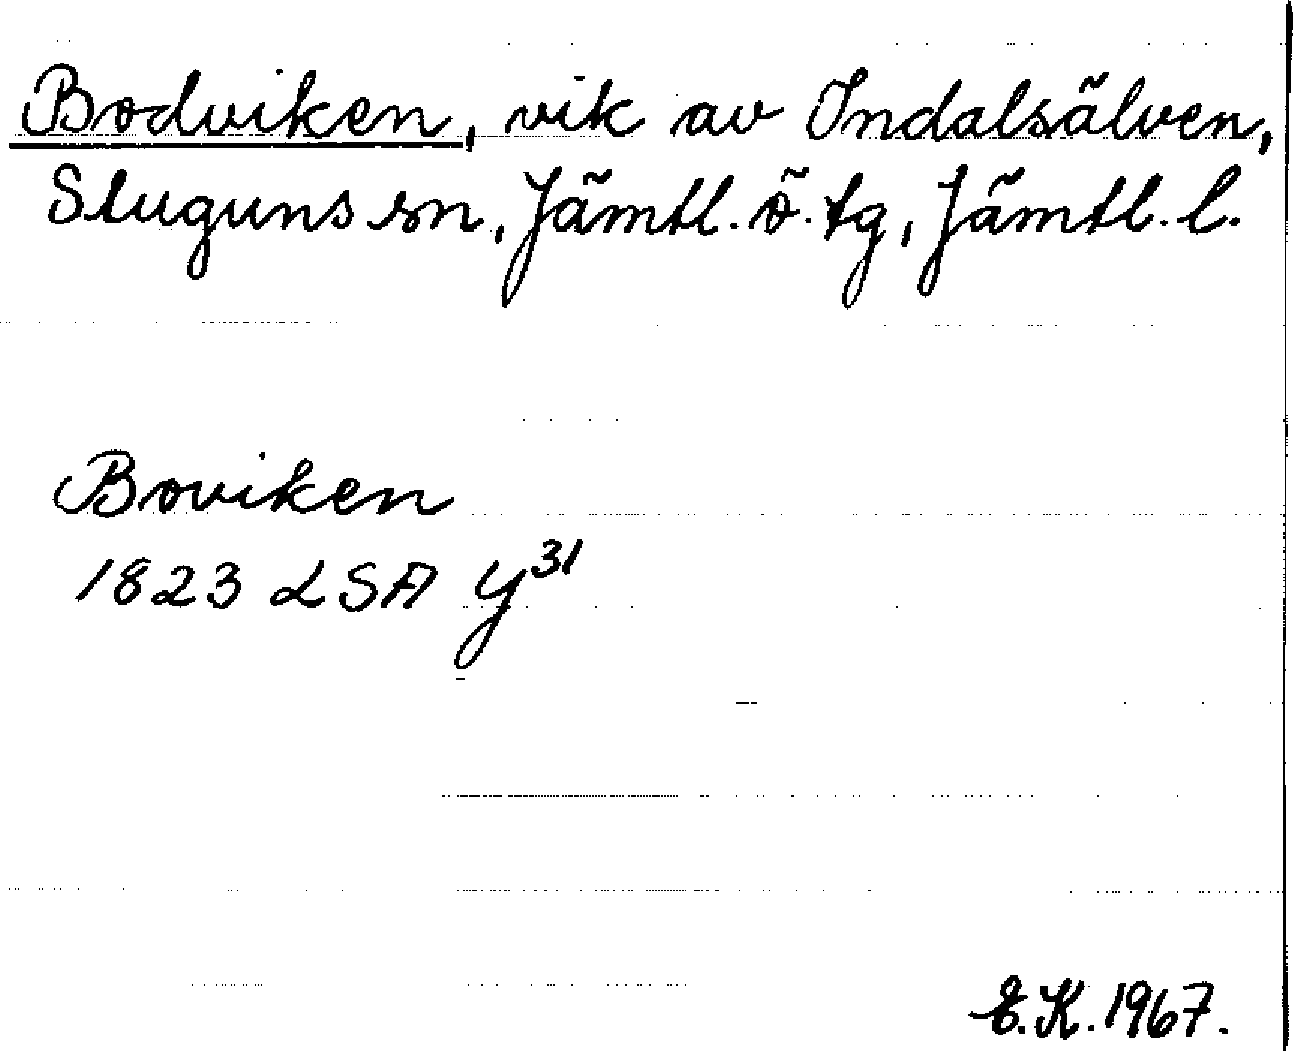 Bodviken, vik av Indalsälven,
Stuguns sn, Jämtl. ö. tg, Jämtl. l.
Boviken
1823 LSA Y³¹
E.K. 1967.